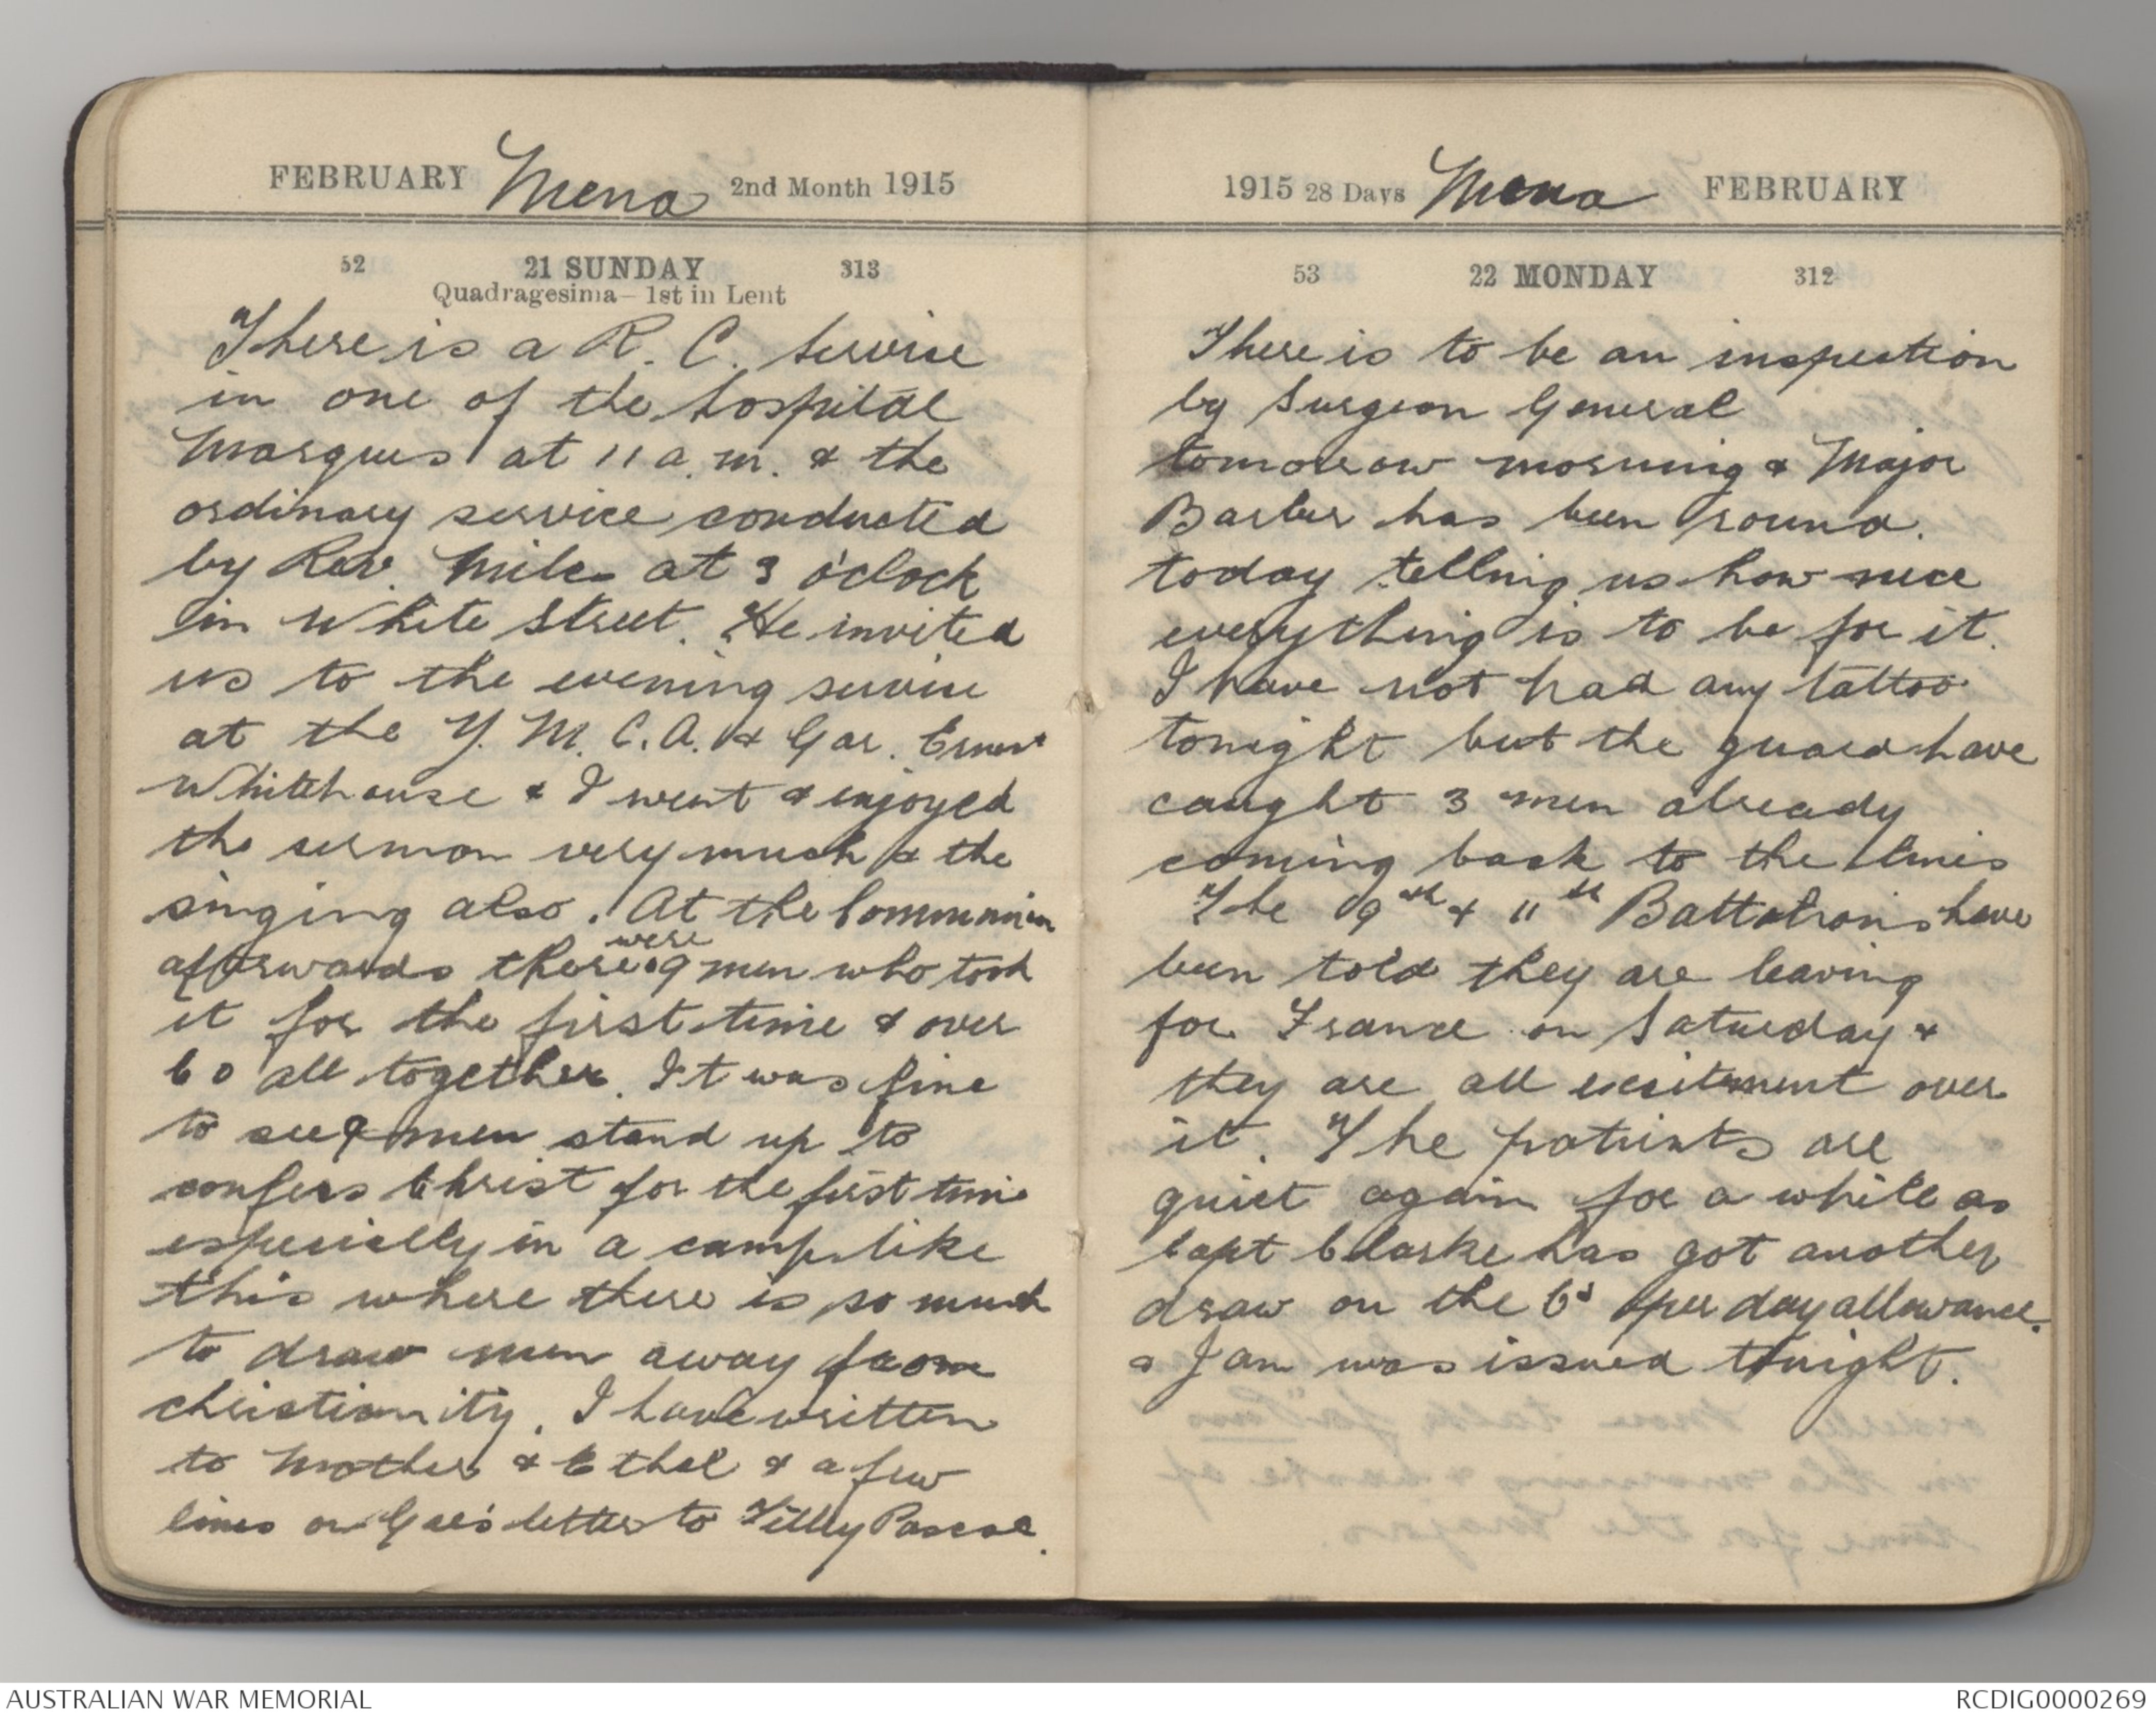 FEBRUARY Mena 2nd Month 1915
52 21 SUNDAY 313
Quadragesima—1st in Lent
There is a R. C. Service
in one of the hospital
Marques at 11 a.m. & the
ordinary service conducted
by Rev. Miles at 3 o'clock
in White Street. He invited
us to the evening service
at the Y. M. C. A. & Geo. Ernest
Whitehouse & I went & enjoyed
the sermon very much & the
singing also. At the Communion
afterwards there were 9 men who took
it for the first time & over
60 all together. It was fine
to see 9 men stand up to
confess Christ for the first time
especially in a camp like
this where there is so much
to draw men away from
christianity. I have written
to Mother & Ethel & a few
lines on Geo's letter to Tilly Pascoe.
1915 28 Days Mena FEBRUARY
53 22 MONDAY 312
There is to be an inspection
by Surgeon General
tomorrow morning & Major
Barber has been round.
today telling us how nice
everything is to be for it.
I have not had any tattoo
tonight but the guard have
caught 3 men already
coming back to the lines
The 9th & 11th Battalions have
been told they are leaving
for France on Saturday &
they are all excitement over
it. The patients are
quiet again for a while as
Capt Clarke has got another
draw on the 6d per day allowance.
& Jam was issued tonight.
AUSTRALIAN WAR MEMORIAL
RCDIG0000269